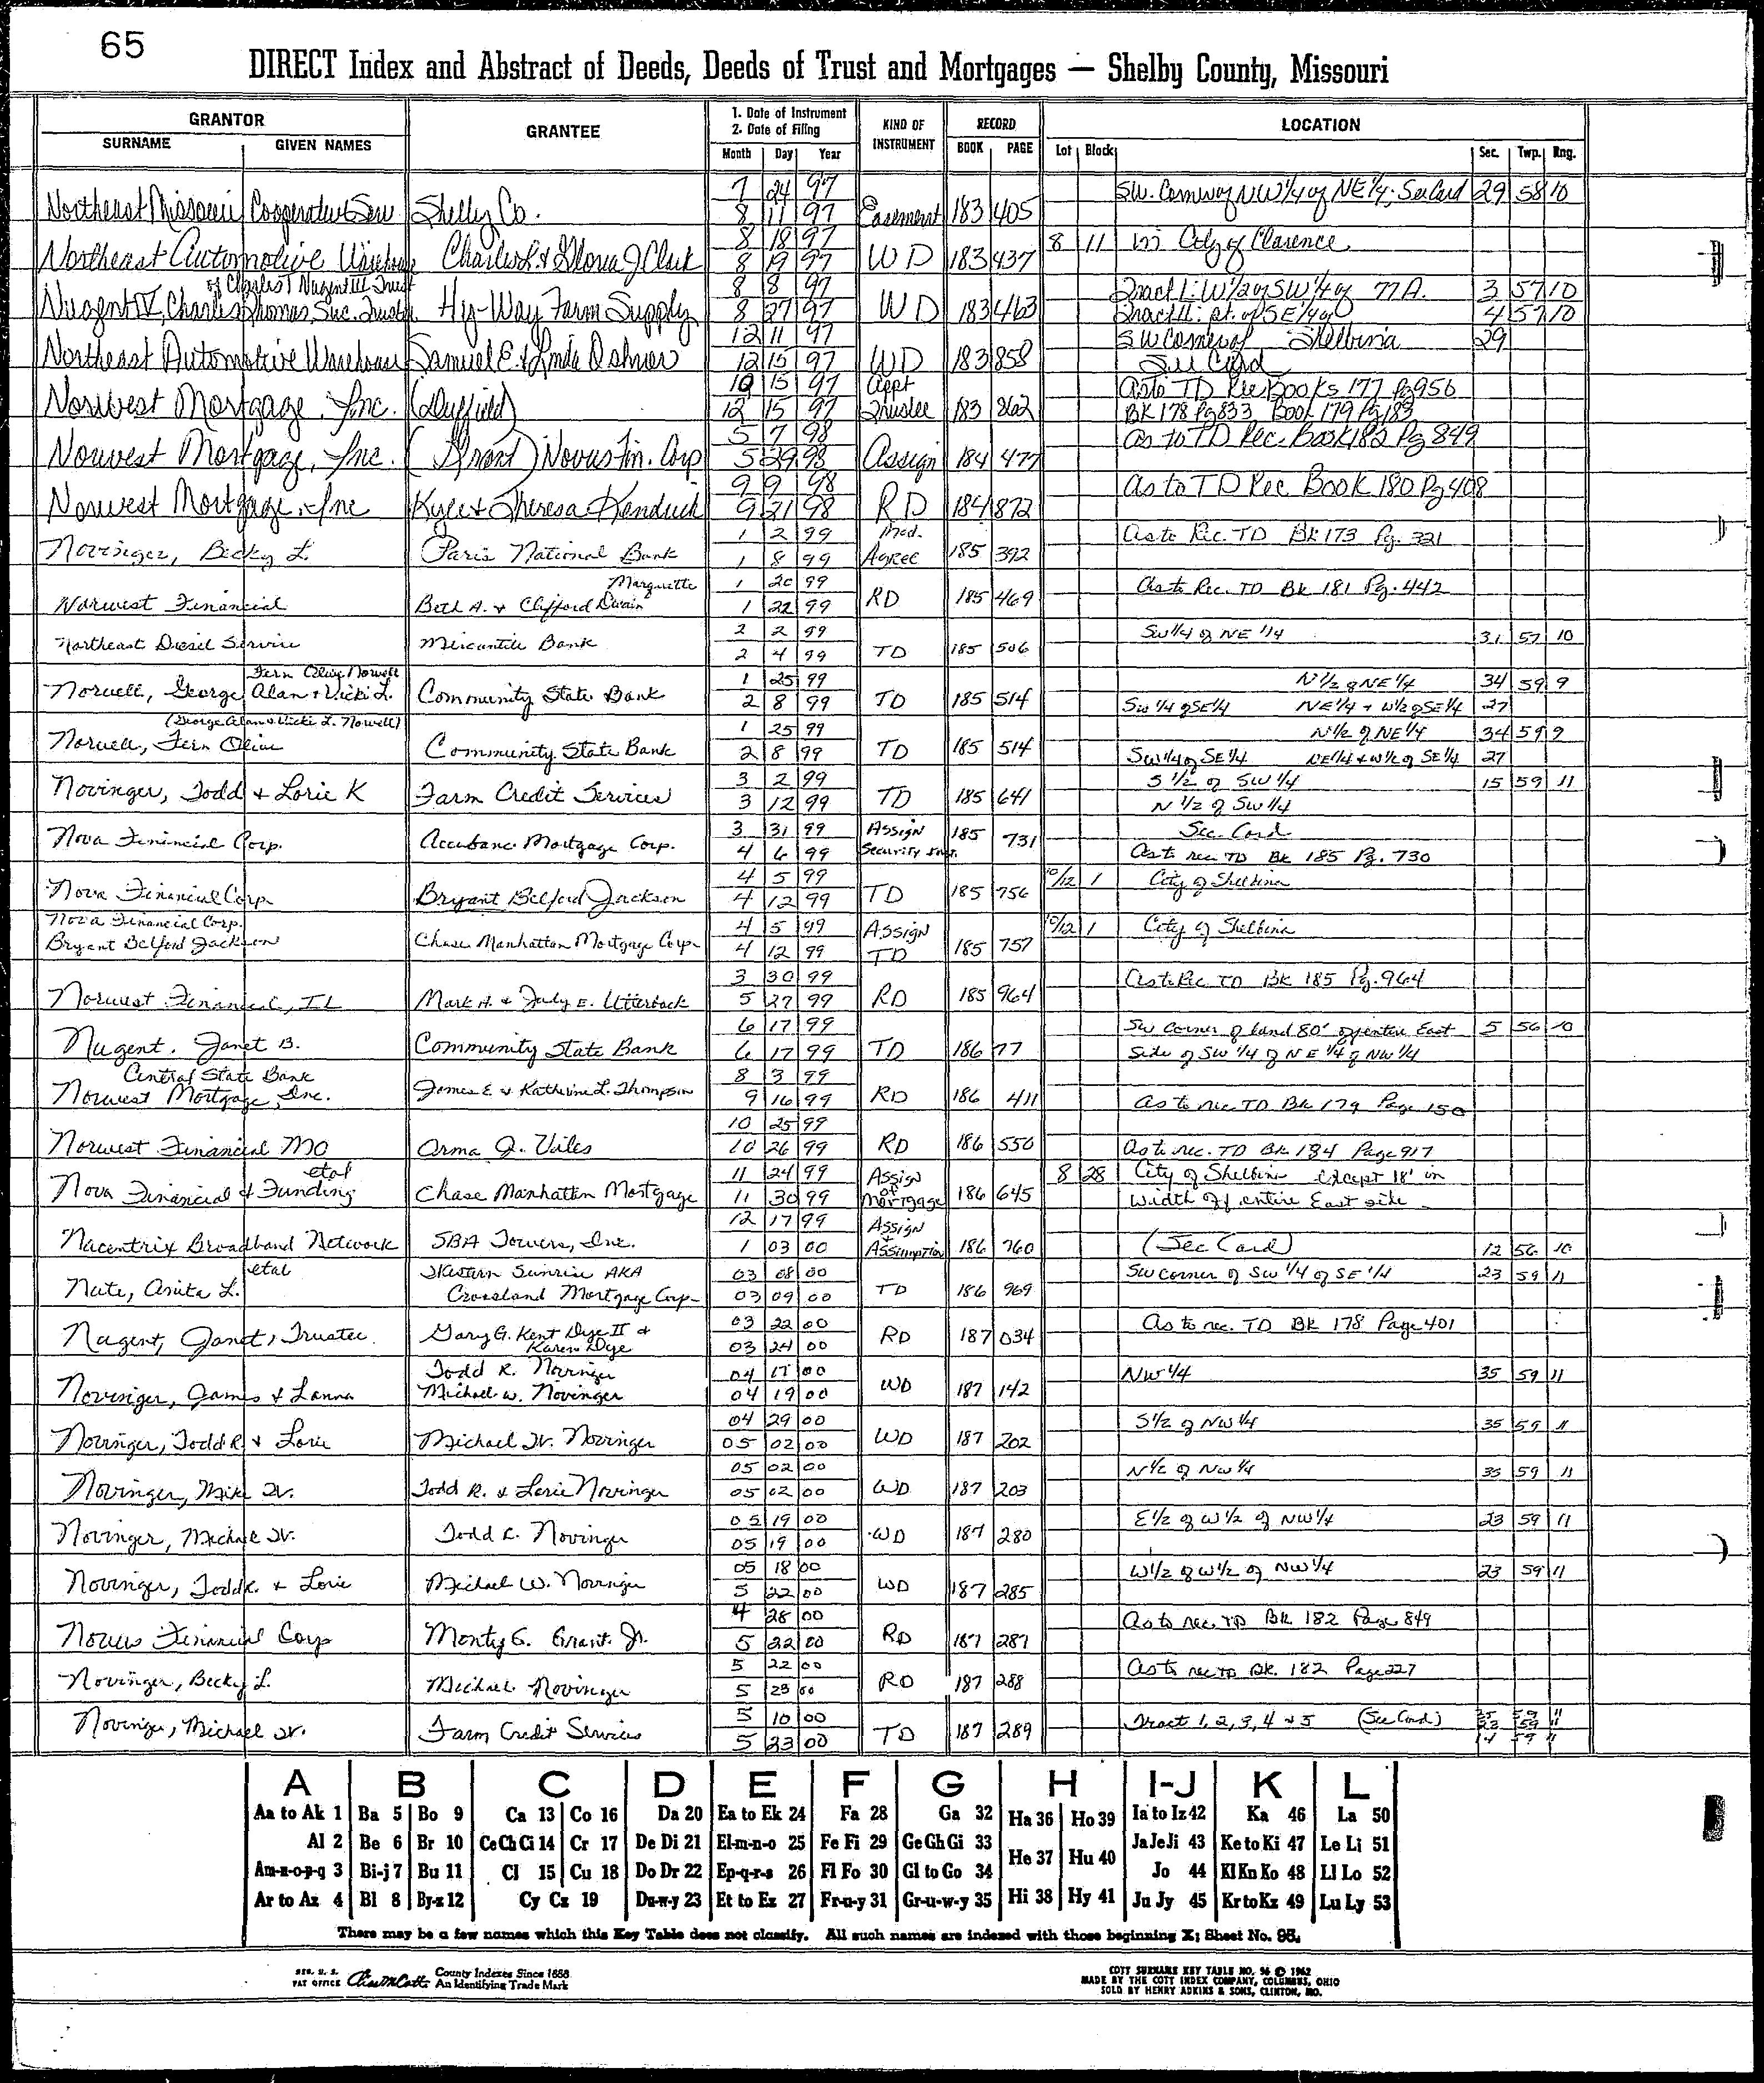 65
DIRECT Index and Abstract of Deeds, Deeds of Trust and Mortgages — Shelby County, Missouri
GRANTOR GRANTEE 1. Date of Instrument 2. Date of Filing KIND OF INSTRUMENT RECORD LOCATION
SURNAME GIVEN NAMES Month Day Year BOOK PAGE Lot Block Sec. Twp. Rng.
7 24 97 SW. Corner of NW 1/4 of NE 1/4; See Card 29 58 10
Northeast Missouri Cooperative Serv Shelby Co. 8 11 97 Easement 183 405
8 18 97 8 11 in City of Clarence
Northeast Automotive Warehouse Charles L. & Gloria J Clark 8 19 97 WD 183 437
of Charles T Nugent III Trust 8 8 97 Tract I: W 1/2 of SW 1/4 of 77 A. 3 57 10
Nugent IV, Charles Thomas, Suc. Trustee Hy-Way Farm Supply 8 27 97 WD 183 463 Tract II: pt. of SE 1/4 of 4 57 10
12 11 97 SW Corner of Shelbina 29
Northeast Automotive Warehouse Samuel E. & Linda 12 15 97 WD 183 858 See Card
10 15 97 Appt As to TD Rec Books 177 Pg 956
Norwest Mortgage, Inc. (Duffield) 12 15 97 Trustee 183 862 BK 178 Pg 833 Book 179 Pg 183
5 7 98 As to TD Rec. Book 182 Pg 849
Norwest Mortgage, Inc. (Grant) Novus Fin. Corp 5 29 98 Assign 184 477
9 9 98 As to TD Rec Book 180 Pg 408
Norwest Mortgage, Inc Kyle & Theresa Kendrick 9 21 98 RD 184 872
1 2 99 Mod. As to Rec. TD Bk 173 Pg. 321
Novinger, Becky L. Paris National Bank 1 8 99 Agree 185 392
Marquette 1 20 99 As to Rec. TD Bk 181 Pg. 442
Norwest Financial Beth A. & Clifford Dwain 1 22 99 RD 185 469
2 2 99 SW 1/4 of NE 1/4 31 57 10
Northeast Diesel Service Mercantile Bank 2 4 99 TD 185 506
Fern Olive Norwell 1 25 99 N 1/2 of NE 1/4 34 59 9
Norwell, George Alan & Vicki L. Community State Bank 2 8 99 TD 185 514 SW 1/4 of SE 1/4 NE 1/4 + W 1/2 of SE 1/4 27
(George Alan & Vicki L. Norwell) 1 25 99 N 1/2 of NE 1/4 34 59 9
Norwell, Fern Olive Community State Bank 2 8 99 TD 185 514 SW 1/4 of SE 1/4 NE 1/4 + W 1/2 of SE 1/4 27
3 2 99 S 1/2 of SW 1/4 15 59 11
Novinger, Todd & Lorie K Farm Credit Services 3 12 99 TD 185 641 N 1/2 of SW 1/4
3 31 99 Assign See Card
Nova Financial Corp. Accubanc Mortgage Corp. 4 6 99 Security Inst. 185 731 As to rec TD Bk 185 Pg. 730
4 5 99 10/12 1 City of Shelbina
Nova Financial Corp Bryant Belford Jackson 4 12 99 TD 185 756
Nova Financial Corp. 4 5 99 Assign 10/12 1 City of Shelbina
Bryant Belford Jackson Chase Manhattan Mortgage Corp 4 12 99 TD 185 757
3 30 99 As to Rec TD Bk 185 Pg. 964
Norwest Financial, IL Mark A. & Judy E. Utterback 5 27 99 RD 185 964
6 17 99 SW Corner of land 80' of entire East 5 56 10
Nugent, Janet B. Community State Bank 6 17 99 TD 186 77 Side of SW 1/4 of NE 1/4 of NW 1/4
Central State Bank 8 3 99
Norwest Mortgage, Inc. James E. & Katherine L. Thompson 9 16 99 RD 186 411 As to rec TD Bk 179 Page 150
10 25 99
Norwest Financial MO Orma J. Viles 10 26 99 RD 186 550 As to rec. TD Bk 184 Page 917
etal 11 24 99 Assign of 8 28 City of Shelbina except 18' in
Nova Financial & Funding Chase Manhattan Mortgage 11 30 99 Mortgage 186 645 width off entire East side
12 17 99 Assign +
Nacentrix Broadband Network SBA Towers, Inc. 1 03 00 Assumption 186 760 (See Card) 12 56 10
etal Western Sunrise AKA 03 08 00 SW corner of SW 1/4 of SE 1/4 23 59 11
Nute, Anita L. Crossland Mortgage Corp 03 09 00 TD 186 969
03 22 00 As to rec. TD Bk 178 Page 401
Nugent, Janet, Trustee Gary G. Kent Dye II & Karen Dye 03 24 00 RD 187 034
Todd R. Novinger 04 17 00 NW 1/4 35 59 11
Novinger, James & Lanna Michael W. Novinger 04 19 00 WD 187 142
04 29 00 S 1/2 of NW 1/4 35 59 11
Novinger, Todd R & Lorie Michael W. Novinger 05 02 00 WD 187 202
05 02 00 N 1/2 of NW 1/4 35 59 11
Novinger, Mike W. Todd R. & Lorie Novinger 05 02 00 WD 187 203
05 19 00 E 1/2 of W 1/2 of NW 1/4 23 59 11
Novinger, Michael W. Todd R. Novinger 05 19 00 WD 187 280
05 18 00 W 1/2 of W 1/2 of NW 1/4 23 59 11
Novinger, Todd R. & Lorie Michael W. Novinger 5 22 00 WD 187 285
4 28 00 As to rec. TD Bk 182 Page 849
Novus Financial Corp Monty G. Grant, Jr. 5 22 00 RD 187 287
5 22 00 As to rec TD Bk. 182 Page 227
Novinger, Becky L. Michael Novinger 5 23 00 RD 187 288
5 10 00 Tract 1, 2, 3, 4 & 5 (See Card) 35 59 11
23 59 11
Novinger, Michael W. Farm Credit Services 5 23 00 TD 187 289 14 59 11
A B C D E F G H I-J K L
Aa to Ak 1 Ba 5 Bo 9 Ca 13 Co 16 Da 20 Ea to Ek 24 Fa 28 Ga 32 Ha 36 Ho 39 Ia to Iz 42 Ka 46 La 50
Al 2 Be 6 Br 10 Ce Ch Ci 14 Cr 17 De Di 21 El-m-n-o 25 Fe Fi 29 Ge Gh Gi 33 He 37 Hu 40 Ja Je Ji 43 Ke to Ki 47 Le Li 51
Am-n-o-p-q 3 Bi-j 7 Bu 11 Cl 15 Cu 18 Do Dr 22 Ep-q-r-s 26 Fl Fo 30 Gl to Go 34 Jo 44 Kl Kn Ko 48 Ll Lo 52
Ar to Az 4 Bl 8 By-z 12 Cy Cz 19 Du-w-y 23 Et to Ez 27 Fr-u-y 31 Gr-u-w-y 35 Hi 38 Hy 41 Ju Jy 45 Kr to Kz 49 Lu Ly 53
There may be a few names which this Key Table does not classify. All such names are indexed with those beginning X; Sheet No. 95.
REG. U. S. PAT OFFICE County Indexes Since 1888
An Identifying Trade Mark
COTT SURNAME KEY TABLE NO. 96 © 1962
MADE BY THE COTT INDEX COMPANY, COLUMBUS, OHIO
SOLD BY HENRY ADKINS & SONS, CLINTON, MO.